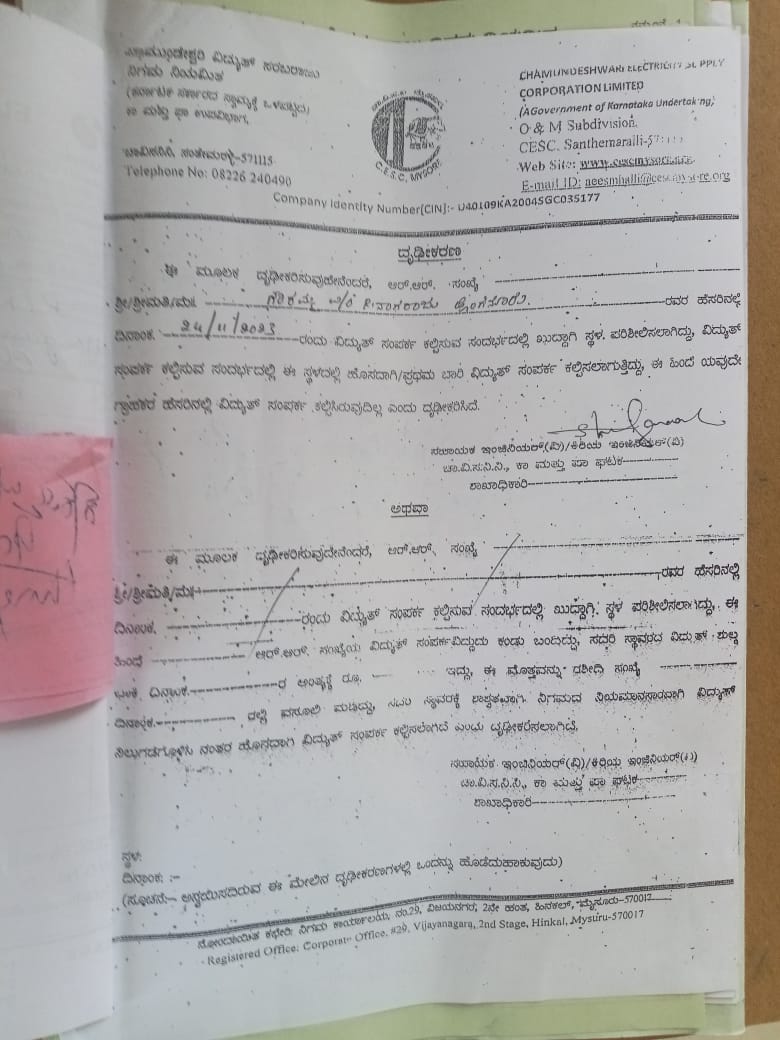 ಚಾಮುಂಡೇಶ್ವರಿ ವಿದ್ಯುತ್ ಸರಬರಾಜು
ನಿಗಮ ನಿಯಮಿತ
(ಕರ್ನಾಟಕ ಸರ್ಕಾರದ ಸ್ವಾಮ್ಯಕ್ಕೆ ಒಳಪಟ್ಟಿದೆ)
ಕಾ ಮತ್ತು ಪಾ ಉಪವಿಭಾಗ,
ಚಾವಿಸನಿನಿ, ಸಂತೇಮರಳ್ಳಿ-571115
Telephone No: 08226 240490
C.E.S.C, MYSORE
CHAMUNDESHWARI ELECTRICITY SUPPLY
CORPORATION LIMITED
(A Government of Karnataka Undertaking)
O & M Subdivision,
CESC, Santhemaralli-571115
Web Site: www.cescmysore.org
E-mail ID: aeesmhalli@cescmysore.org
Company Identity Number[CIN]:- U40109KA2004SGC035177
ದೃಢೀಕರಣ
ಈ ಮೂಲಕ ದೃಢೀಕರಿಸುವುದೇನೆಂದರೆ, ಆರ್.ಆರ್. ಸಂಖ್ಯೆ
ಶ್ರೀ/ಶ್ರೀಮತಿ/ಮಃ W/o ರವರ ಹೆಸರಿನಲ್ಲಿ
ದಿನಾಂಕ. 24/11/2023 ರಂದು ವಿದ್ಯುತ್ ಸಂಪರ್ಕ ಕಲ್ಪಿಸುವ ಸಂದರ್ಭದಲ್ಲಿ ಖುದ್ದಾಗಿ ಸ್ಥಳ ಪರಿಶೀಲಿಸಲಾಗಿದ್ದು, ವಿದ್ಯುತ್
ಸಂಪರ್ಕ ಕಲ್ಪಿಸುವ ಸಂದರ್ಭದಲ್ಲಿ ಈ ಸ್ಥಳದಲ್ಲಿ ಹೊಸದಾಗಿ/ಪ್ರಥಮ ಬಾರಿ ವಿದ್ಯುತ್ ಸಂಪರ್ಕ ಕಲ್ಪಿಸಲಾಗುತ್ತಿದ್ದು, ಈ ಹಿಂದೆ ಯಾವುದೇ
ಗ್ರಾಹಕರ ಹೆಸರಿನಲ್ಲಿ ವಿದ್ಯುತ್ ಸಂಪರ್ಕ ಕಲ್ಪಿಸಿರುವುದಿಲ್ಲ ಎಂದು ದೃಢೀಕರಿಸಿದೆ.
ಸಹಾಯಕ ಇಂಜಿನಿಯರ್(ವಿ)/ಕಿರಿಯ ಇಂಜಿನಿಯರ್(ವಿ)
ಚಾ.ವಿ.ಸ.ನಿ.ನಿ., ಕಾ ಮತ್ತು ಪಾ ಘಟಕ
ಶಾಖಾಧಿಕಾರಿ
ಅಥವಾ
ಈ ಮೂಲಕ ದೃಢೀಕರಿಸುವುದೇನೆಂದರೆ, ಆರ್.ಆರ್. ಸಂಖ್ಯೆ
ಶ್ರೀ/ಶ್ರೀಮತಿ/ಮಃ ರವರ ಹೆಸರಿನಲ್ಲಿ
ದಿನಾಂಕ. ರಂದು ವಿದ್ಯುತ್ ಸಂಪರ್ಕ ಕಲ್ಪಿಸುವ ಸಂದರ್ಭದಲ್ಲಿ ಖುದ್ದಾಗಿ ಸ್ಥಳ ಪರಿಶೀಲಿಸಲಾಗಿದ್ದು, ಈ
ಹಿಂದೆ ಆರ್.ಆರ್. ಸಂಖ್ಯೆಯ ವಿದ್ಯುತ್ ಸಂಪರ್ಕವಿದ್ದುದು ಕಂಡು ಬಂದಿದ್ದು, ಸದರಿ ಸ್ಥಾವರದ ವಿದ್ಯುತ್ ಶುಲ್ಕ
ಬಾಕಿ ದಿನಾಂಕ. ರ ಅಂತ್ಯಕ್ಕೆ ರೂ. ಇದ್ದು, ಈ ಮೊತ್ತವನ್ನು ರಶೀದಿ ಸಂಖ್ಯೆ
ದಿನಾಂಕ. ರಲ್ಲಿ ವಸೂಲಿ ಮಾಡಿದ್ದು, ಸದರಿ ಸ್ಥಾವರಕ್ಕೆ ಶಾಶ್ವತವಾಗಿ ನಿಗಮದ ನಿಯಮಾನುಸಾರವಾಗಿ ವಿದ್ಯುತ್
ನಿಲುಗಡೆಗೊಳಿಸಿ ನಂತರ ಹೊಸದಾಗಿ ವಿದ್ಯುತ್ ಸಂಪರ್ಕ ಕಲ್ಪಿಸಲಾಗಿದೆ ಎಂದು ದೃಢೀಕರಿಸಲಾಗಿದೆ.
ಸಹಾಯಕ ಇಂಜಿನಿಯರ್(ವಿ)/ಕಿರಿಯ ಇಂಜಿನಿಯರ್(ವಿ)
ಚಾ.ವಿ.ಸ.ನಿ.ನಿ., ಕಾ ಮತ್ತು ಪಾ ಘಟಕ
ಶಾಖಾಧಿಕಾರಿ
ಸ್ಥಳ:
ದಿನಾಂಕ: :-
(ಸೂಚನೆ:- ಅನ್ವಯಿಸದಿರುವ ಈ ಮೇಲಿನ ದೃಢೀಕರಣಗಳಲ್ಲಿ ಒಂದನ್ನು ಹೊಡೆದುಹಾಕುವುದು)
ನೋಂದಾಯಿತ ಕಛೇರಿ: ನಿಗಮ ಕಾರ್ಯಾಲಯ, ನಂ.29, ವಿಜಯನಗರ, 2ನೇ ಹಂತ, ಹಿನಕಲ್, ಮೈಸೂರು-570017
Registered Office: Corporate Office, #29, Vijayanagara, 2nd Stage, Hinkal, Mysuru-570017